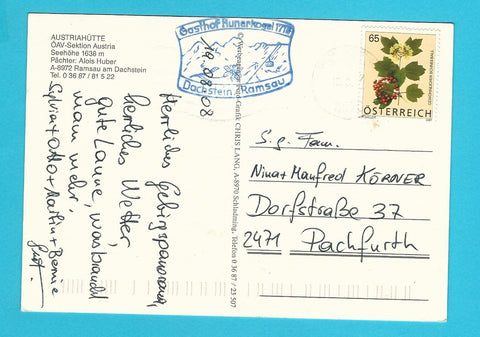 AUSTRIAHÜTTE
ÖAV-Sektion Austria
Seehöhe 1638 m
Pächter: Alois Huber
A-8972 Ramsau am Dachstein
Tel. 0 36 87 / 81 5 22
Herrliches Gebirgspanorama,
herrliches Wetter
gute Laune, was braucht
man mehr.
Sylvia + Otto + Martin + Bernie
CHRIS LANG, A-8970 Schladming, Telefon 0 36 87 / 23 507
Gasthof Hunerkogel
Dachstein Ramsau
19.08.08
65
ÖSTERREICH
S.g. Fam.
Nina + Manfred KÖRNER
Dorfstraße 37
2471 Pachfurth